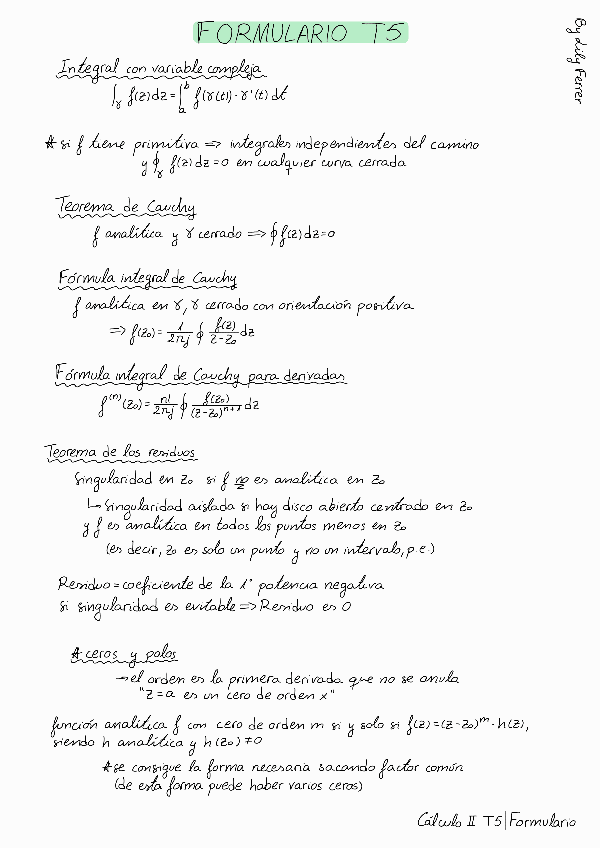 FORMULARIO T5
By Lily Ferrer
Integral con variable compleja
∫_γ f(z)dz = ∫_a^b f(γ(t))·γ'(t) dt
* si f tiene primitiva => integrales independientes del camino
y ∮_γ f(z)dz=0 en cualquier curva cerrada
Teorema de Cauchy
f analítica y γ cerrado => ∮f(z)dz=0
Fórmula integral de Cauchy
f analítica en γ, γ cerrado con orientación positiva
=> f(z₀)= 1/2πj ∮ f(z)/z-z₀ dz
Fórmula integral de Cauchy para derivadas
f^(n)(z₀)= n!/2πj ∮ f(z₀)/(z-z₀)^n+1 dz
Teorema de los residuos
Singularidad en z₀ si f no es analítica en z₀
↳ Singularidad aislada si hay disco abierto centrado en z₀
y f es analítica en todos los puntos menos en z₀
(es decir, z₀ es solo un punto y no un intervalo, p.e.)
Residuo = coeficiente de la 1ª potencia negativa
si singularidad es evitable => Residuo es 0
* ceros y polos
→ el orden es la primera derivada que no se anula
"z=a es un cero de orden x"
función analítica f con cero de orden m si y solo si f(z)=(z-z₀)^m·h(z),
siendo h analítica y h(z₀)≠0
* se consigue la forma necesaria sacando factor común
(de esta forma puede haber varios ceros)
Cálculo II T5|Formulario